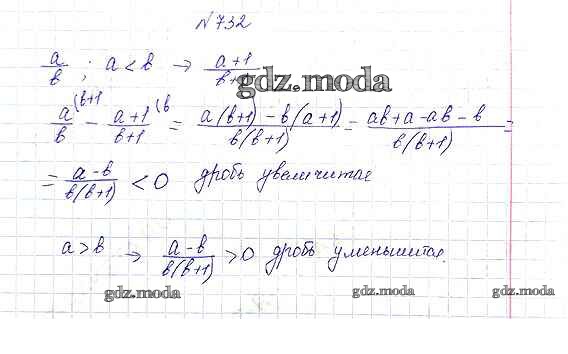 №732
a/b ; a < b → a+1/b+1
gdz.moda
a(b+1/b - a+1(b/b+1 = a(b+1)-b(a+1)/b(b+1) = ab+a-ab-b/b(b+1) =
= a-b/b(b+1) < 0 дробь увеличится
a>b → a-b/b(b+1) >0 дробь уменьшится.
gdz.moda gdz.moda gdz.moda
gdz.moda